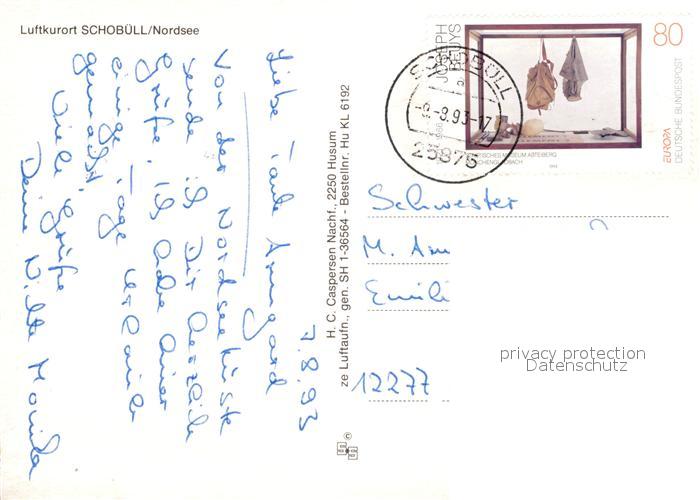 Luftkurort SCHOBÜLL/Nordsee
7.8.93
Liebe Tante Armgard
Von der Nordseeküste
sende ich Dir herzliche
Grüße. Ich habe hier
einige Tage Urlaub
gemacht.
Viele Grüße
Deine Nichte Monika
H. C. Caspersen Nachf., 2250 Husum
ze Luftaufn., gen. SH 1-36564 - Bestellnr. Hu KL 6192
©
JOSEPH
BEUYS
80
DEUTSCHE BUNDESPOST
EUROPA
SCHOBÜLL
a
-9.-8.93-17
25875
Schwester
M. Arm
Emili
12277
privacy protection
Datenschutz